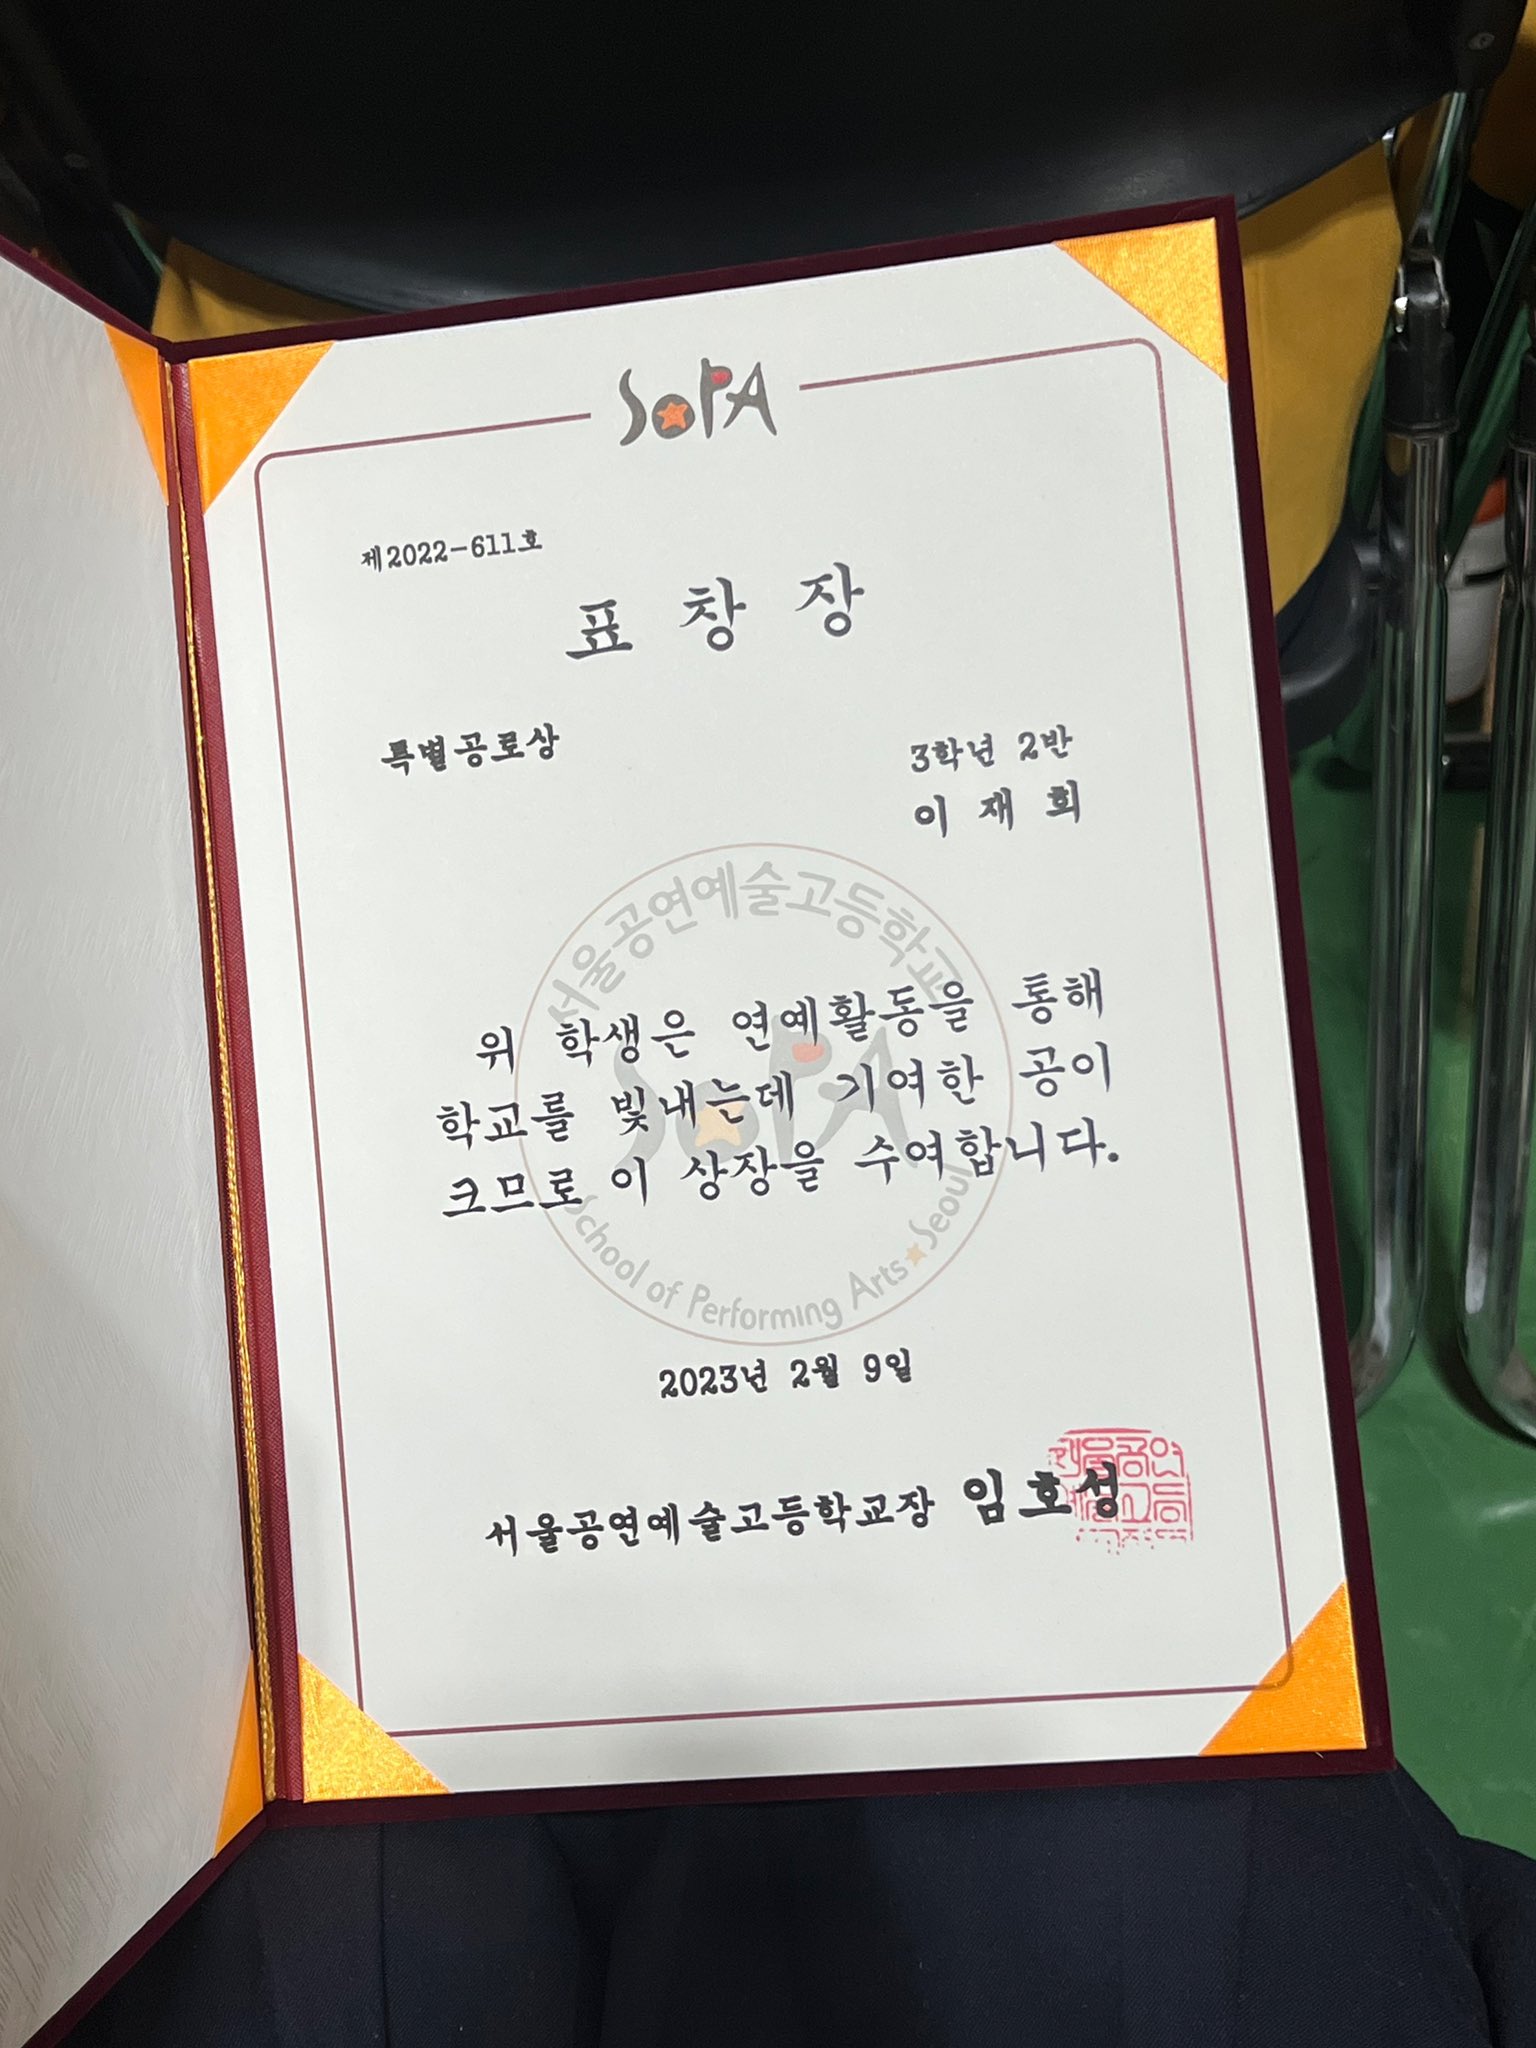 SoPA
제2022-611호
표 창 장
특별공로상
3학년 2반
이 재 희
서울공연예술고등학교
위 학생은 연예활동을 통해
학교를 빛내는데 기여한 공이
크므로 이 상장을 수여합니다.
SoPA
School of Performing Arts Seoul
2023년 2월 9일
서울공연예술고등학교장 임호성